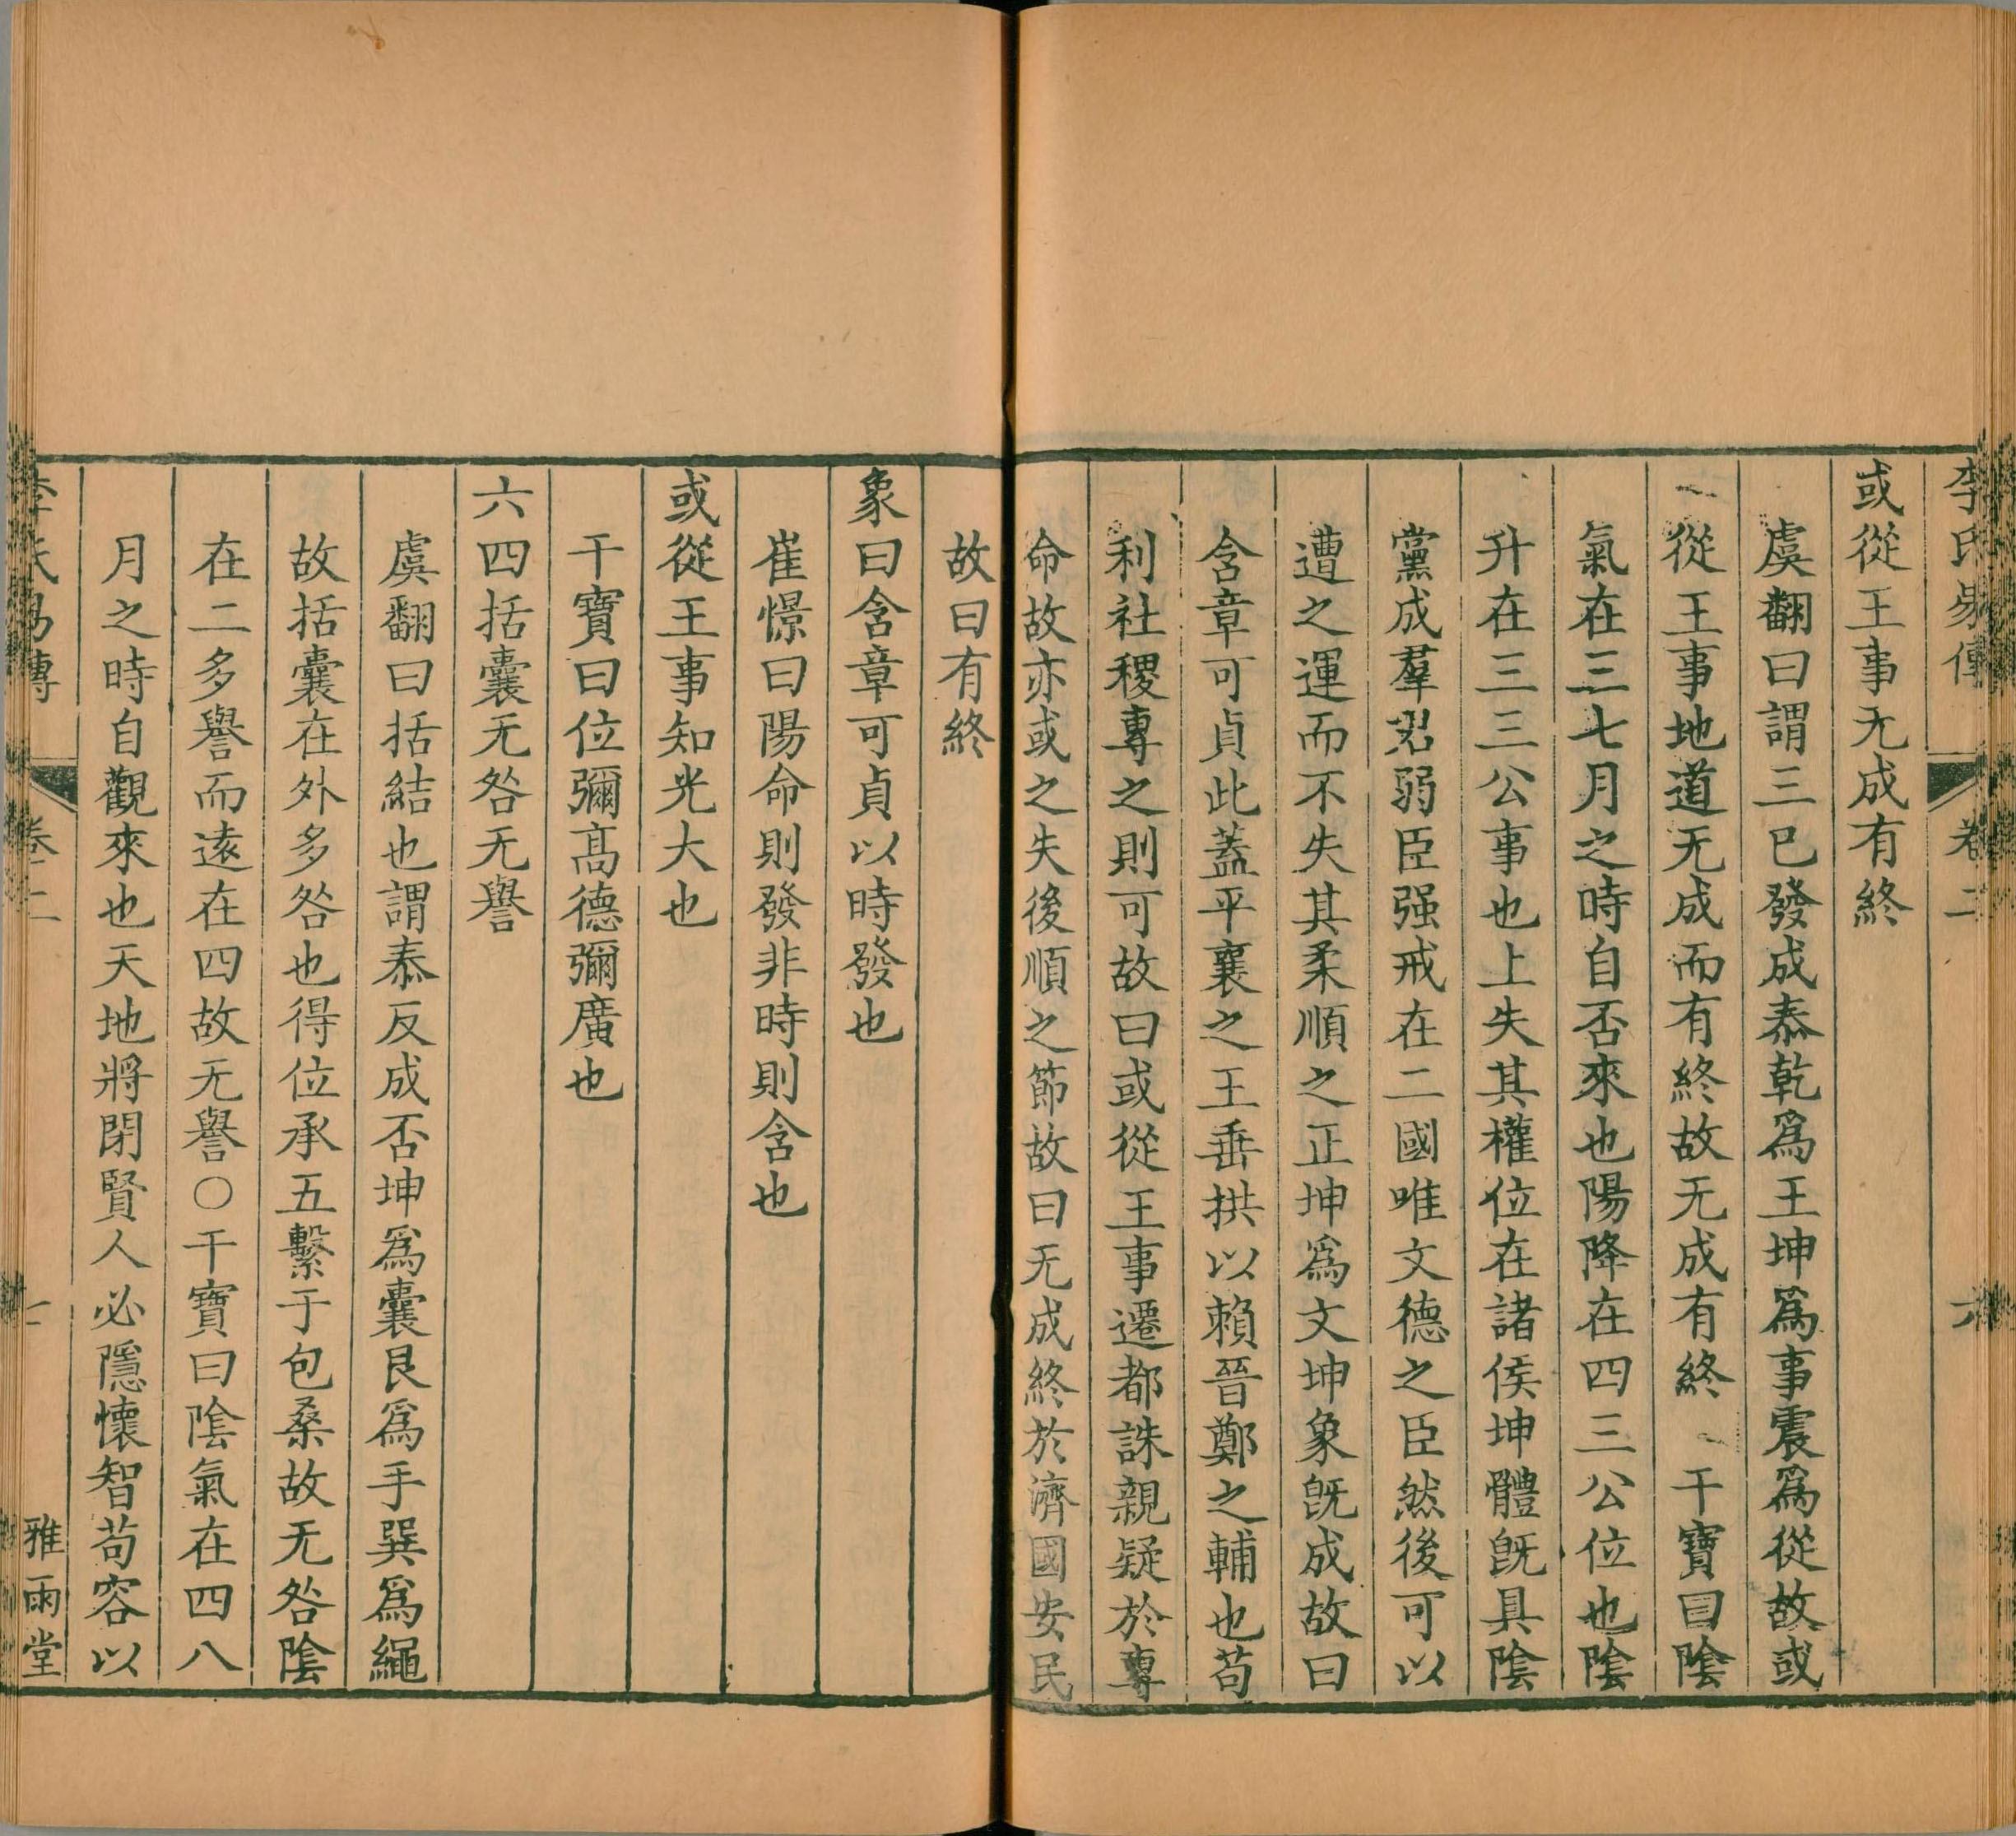 李氏易傳 卷二 六
或從王事无成有終
虞翻曰謂三已發成泰乾爲王坤爲事震爲從故或
從王事地道无成而有終故无成有終 干寶曰陰
氣在三七月之時自否來也陽降在四三公位也陰
升在三三公事也上失其權位在諸侯坤體旣具陰
黨成羣君弱臣强戒在二國唯文德之臣然後可以
遭之運而不失其柔順之正坤爲文坤象旣成故曰
含章可貞此蓋平襄之王垂拱以賴晉鄭之輔也苟
利社稷專之則可故曰或從王事遷都誅親疑於專
命故亦或之失後順之節故曰无成終於濟國安民
故曰有終
象曰含章可貞以時發也
崔憬曰陽命則發非時則含也
或從王事知光大也
干寶曰位彌高德彌廣也
六四括囊无咎无譽
虞翻曰括結也謂泰反成否坤爲囊艮爲手巽爲繩
故括囊在外多咎也得位承五繫于包桑故无咎陰
在二多譽而遠在四故无譽○干寶曰陰氣在四八
月之時自觀來也天地將閉賢人必隱懷智苟容以
李氏易傳 卷二 雅雨堂